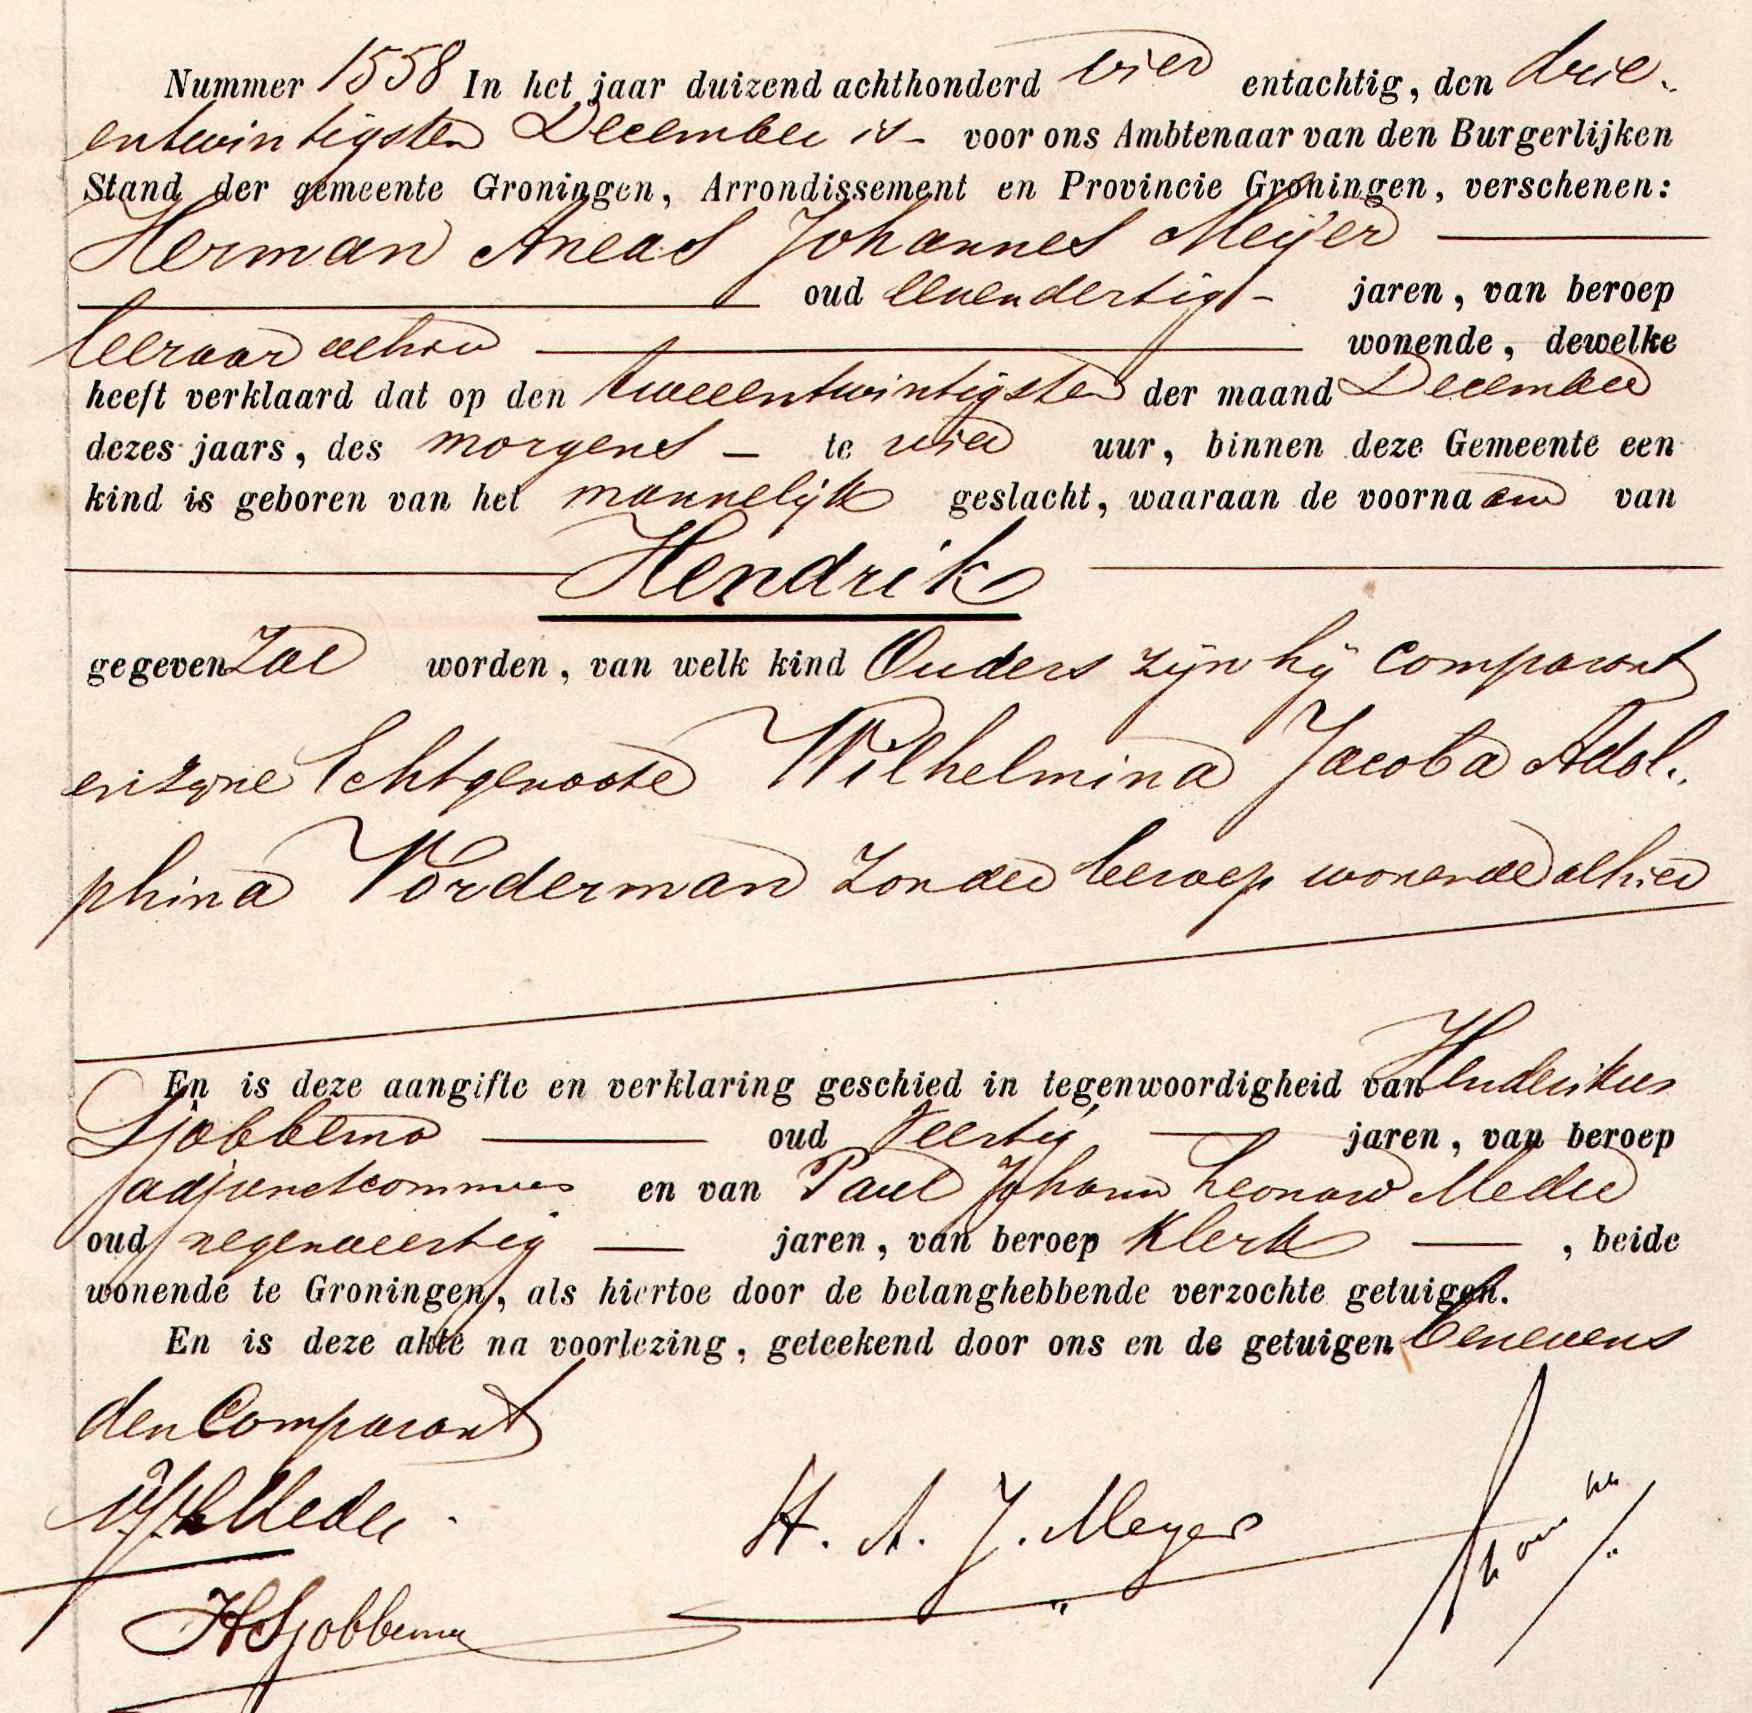 Nummer 1558 In het jaar duizend achthonderd vier entachtig, den drie-
entwintigsten December is – voor ons Ambtenaar van den Burgerlijken
Stand der gemeente Groningen, Arrondissement en Provincie Groningen, verschenen:
Herman Aneas Johannes Meijer
oud eenendertig – jaren, van beroep
leeraar alhier wonende, dewelke
heeft verklaard dat op den tweeentwintigsten der maand December
dezes jaars, des morgens – te vier uur, binnen deze Gemeente een
kind is geboren van het mannelijk geslacht, waaraan de voornaam van
Hendrik
gegeven zal worden, van welk kind Ouders zijn hij Comparant
en zijne Echtgenoote Wilhelmina Jacoba Adol-
phina Vorderman zonder beroep wonende alhier
En is deze aangifte en verklaring geschied in tegenwoordigheid van Henderikus
Sjobbema oud Veertig jaren, van beroep
adjunctcommies en van Paul Johann Leonard Meder
oud negenveertig jaren, van beroep Klerk , beide
wonende te Groningen, als hiertoe door de belanghebbende verzochte getuigen.
En is deze akte na voorlezing, geteekend door ons en de getuigen benevens
den Comparant
PJL Meder.
H. A. J. Meyer
HSjobbema